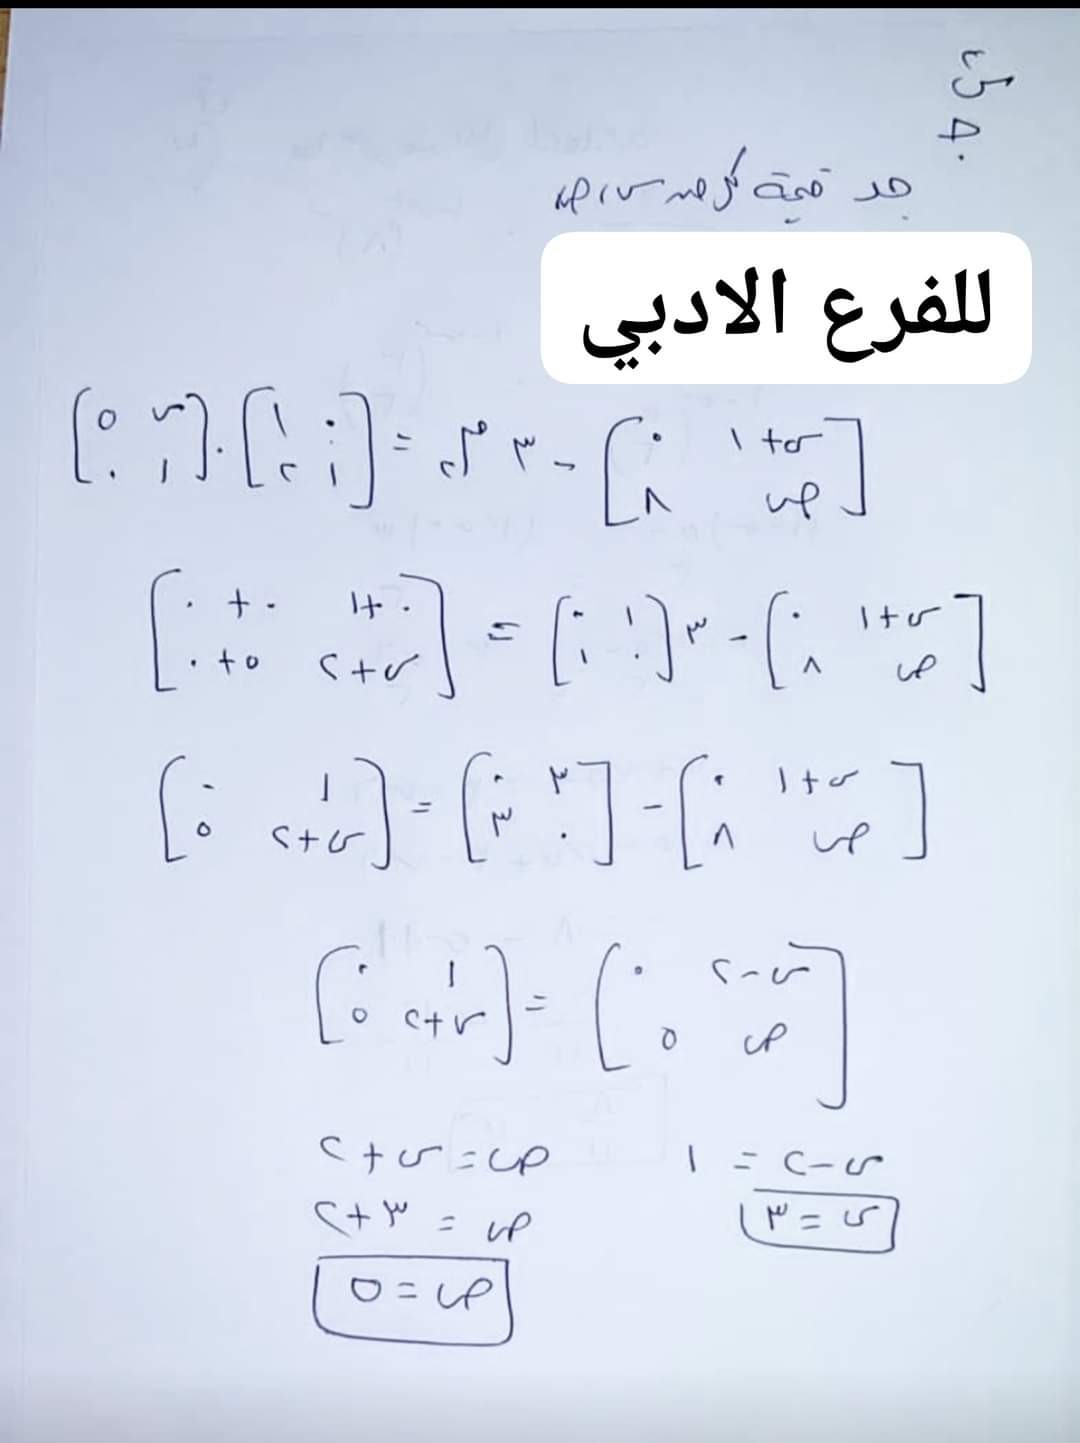 س٤
ﻫ.
جد قيمة كل من س، ص
للفرع الادبي
[س+١ ٠ ; ص ٨] - ٣ م٢ = [٠ ١ ; ١ ٢] . [س ٥ ; ١ ٠]
[س+١ ٠ ; ص ٨] - ٣ [١ ٠ ; ٠ ١] = [٠+١ ٠+٠ ; س+٢ ٥+٠]
[س+١ ٠ ; ص ٨] - [٣ ٠ ; ٠ ٣] = [١ ٠ ; س+٢ ٥]
[س-٢ ٠ ; ص ٥] = [١ ٠ ; س+٢ ٥]
س-٢ = ١
س = ٣
ص = س+٢
ص = ٣+٢
ص = ٥